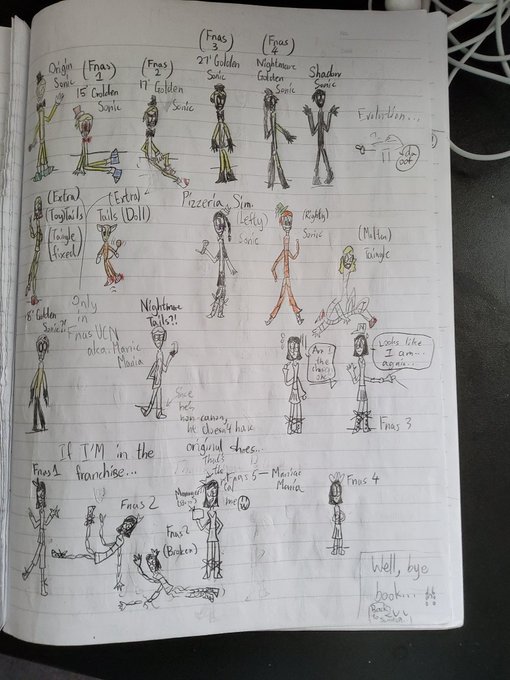 Origin
Sonic
(Fnas)
1
15' Golden
Sonic
(Fnas)
2
17' Golden
Sonic
(Fnas)
3
27' Golden
Sonic
(Fnas)
4
Nightmare
Golden
Sonic
Shadow
Sonic
Evolution...
(Extra)
(ToyTails)
(Taingle
fixed)
(Extra)
Tails (Doll)
Pizzeria Sim.
Lefty
Sonic
(Righty)
Sonic
(Molten)
Taingle
18' Golden
Sonic?!
Only
in
Fnas UCN
aka. Manic
Mania
Nightmare
Tails?!
Since
he's
non-canon,
he doesn't have
original shoes...
Am I
the
chosen
one
Looks like
I am...
again...
Fnas 3
If I'M in the
franchise...
Fnas 1
Fnas 2
Fnas 2
(Broken)
Fnas 5 — Maniac
Mania
me
Fnas 4
Well, bye
book...!!